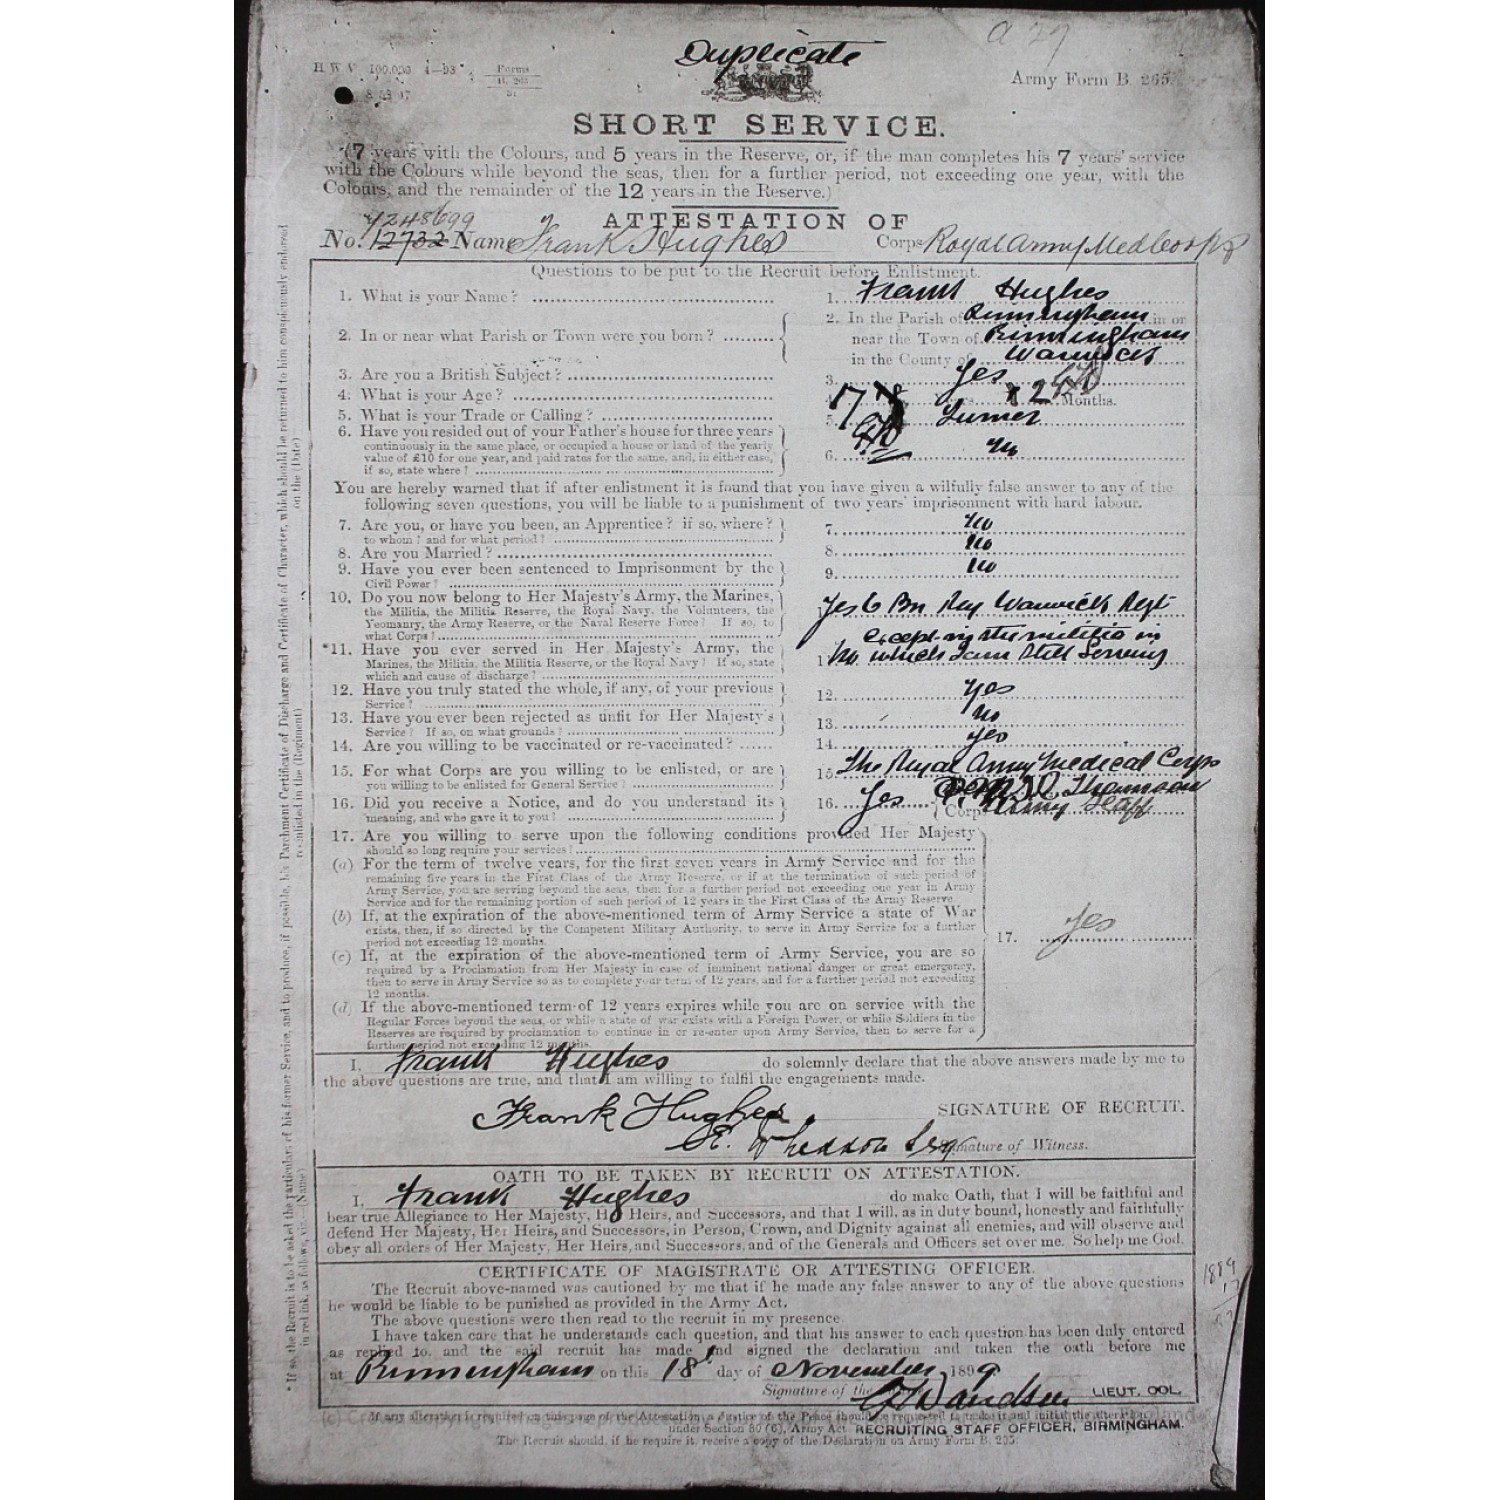 Duplicate
a 27
H W V 100,000 1—98 Forms
B. 265
Army Form B. 265.
SHORT SERVICE.
(7 years with the Colours, and 5 years in the Reserve, or, if the man completes his 7 years' service
with the Colours while beyond the seas, then for a further period, not exceeding one year, with the
Colours, and the remainder of the 12 years in the Reserve.)
7248699
ATTESTATION OF
No. 12732 Name Frank Hughes Corps Royal Army Med Corps
Questions to be put to the Recruit before Enlistment.
1. What is your Name? 1. Frank Hughes
2. In or near what Parish or Town were you born? 2. In the Parish of Birmingham in or
near the Town of Birmingham
in the County of Warwick
3. Are you a British Subject? 3. Yes
4. What is your Age? Months.
5. What is your Trade or Calling? 5. Turner
6. Have you resided out of your Father's house for three years
continuously in the same place, or occupied a house or land of the yearly
value of £10 for one year, and paid rates for the same, and, in either case,
if so, state where? 6. No
You are hereby warned that if after enlistment it is found that you have given a wilfully false answer to any of the
following seven questions, you will be liable to a punishment of two years' imprisonment with hard labour.
7. Are you, or have you been, an Apprentice? if so, where?
to whom? and for what period? 7. No
8. Are you Married? 8. No
9. Have you ever been sentenced to Imprisonment by the
Civil Power? 9. No
10. Do you now belong to Her Majesty's Army, the Marines,
the Militia, the Militia Reserve, the Royal Navy, the Volunteers, the
Yeomanry, the Army Reserve, or the Naval Reserve Force? If so, to
what Corps? Yes 6 Bn Roy Warwick Regt
*11. Have you ever served in Her Majesty's Army, the
Marines, the Militia, the Militia Reserve, or the Royal Navy? If so, state
which and cause of discharge? No except in the militia in
which I am still Serving
12. Have you truly stated the whole, if any, of your previous
Service? 12. Yes
13. Have you ever been rejected as unfit for Her Majesty's
Service? If so, on what grounds? 13. No
14. Are you willing to be vaccinated or re-vaccinated? 14. Yes
15. For what Corps are you willing to be enlisted, or are
you willing to be enlisted for General Service? 15. The Royal Army Medical Corps
16. Did you receive a Notice, and do you understand its
meaning, and who gave it to you? 16. Yes Thomson
Corps Army Staff
17. Are you willing to serve upon the following conditions provided Her Majesty
should so long require your services?
(a) For the term of twelve years, for the first seven years in Army Service and for the
remaining five years in the First Class of the Army Reserve, or if at the termination of such period of
Army Service, you are serving beyond the seas, then for a further period not exceeding one year in Army
Service and for the remaining portion of such period of 12 years in the First Class of the Army Reserve.
(b) If, at the expiration of the above-mentioned term of Army Service a state of War
exists, then, if so directed by the Competent Military Authority, to serve in Army Service for a further
period not exceeding 12 months.
17. Yes
(c) If, at the expiration of the above-mentioned term of Army Service, you are so
required by a Proclamation from Her Majesty in case of imminent national danger or great emergency,
then to serve in Army Service so as to complete your term of 12 years, and for a further period not exceeding
12 months.
(d) If the above-mentioned term of 12 years expires while you are on service with the
Regular Forces beyond the seas, or while a state of war exists with a Foreign Power, or while Soldiers in the
Reserves are required by proclamation to continue in or re-enter upon Army Service, then to serve for a
further period not exceeding 12 months.
I, Frank Hughes do solemnly declare that the above answers made by me to
the above questions are true, and that I am willing to fulfil the engagements made.
Frank Hughes SIGNATURE OF RECRUIT.
Signature of Witness.
OATH TO BE TAKEN BY RECRUIT ON ATTESTATION.
I, Frank Hughes do make Oath, that I will be faithful and
bear true Allegiance to Her Majesty, Her Heirs, and Successors, and that I will, as in duty bound, honestly and faithfully
defend Her Majesty, Her Heirs, and Successors, in Person, Crown, and Dignity against all enemies, and will observe and
obey all orders of Her Majesty, Her Heirs, and Successors, and of the Generals and Officers set over me. So help me God.
CERTIFICATE OF MAGISTRATE OR ATTESTING OFFICER.
The Recruit above-named was cautioned by me that if he made any false answer to any of the above questions
he would be liable to be punished as provided in the Army Act.
The above questions were then read to the recruit in my presence.
I have taken care that he understands each question, and that his answer to each question has been duly entered
as replied to, and the said recruit has made and signed the declaration and taken the oath before me
at Birmingham on this 18 day of November 1899
Signature of the LIEUT. COL.
If any alteration is required on this page of the Attestation, a Justice of the Peace should be requested to make it and initial the alteration
under Section 80 (6), Army Act RECRUITING STAFF OFFICER, BIRMINGHAM.
The Recruit should, if he require it, receive a copy of the Declaration on Army Form B. 235.
* If so, the Recruit is to be asked the particulars of his former Service, and to produce, if possible, his Parchment Certificate of Discharge and Certificate of Character, which should be returned to him conspicuously endorsed
in red ink, as follows, viz.—(Name) re-enlisted in the (Regiment) on the (Date)